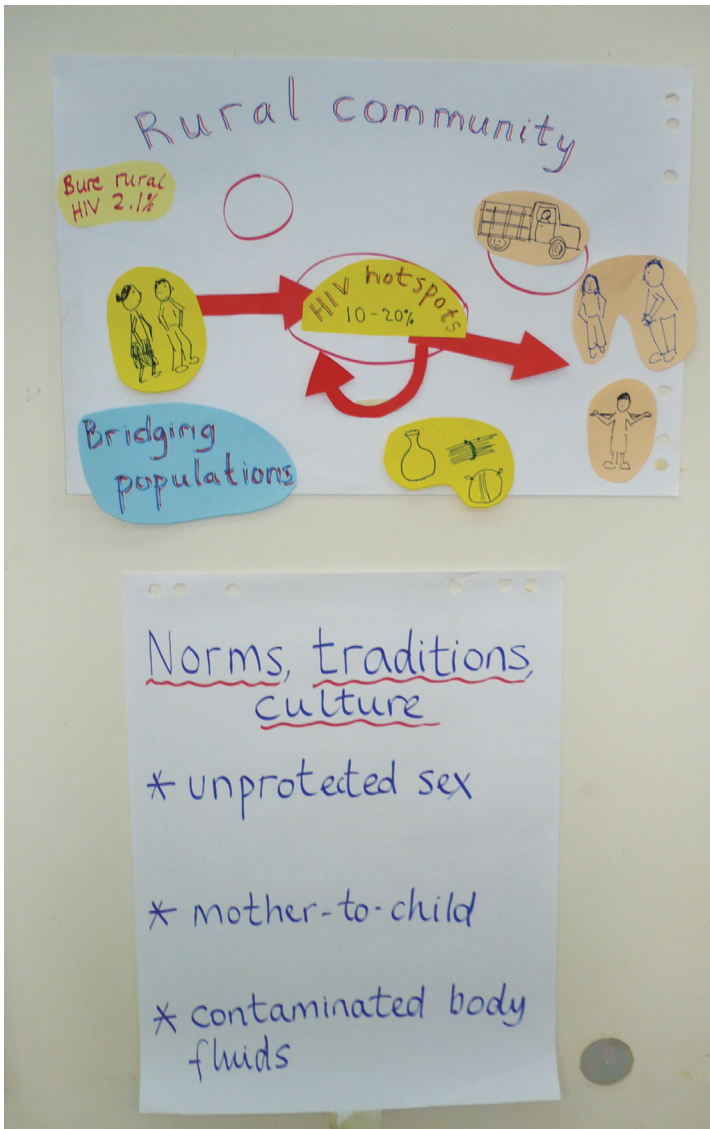 Rural community
Bure rural
HIV 2.1%
HIV hotspots
10-20%
Bridging
populations
Norms, traditions,
culture
* unprotected sex
* mother-to-child
* contaminated body
fluids